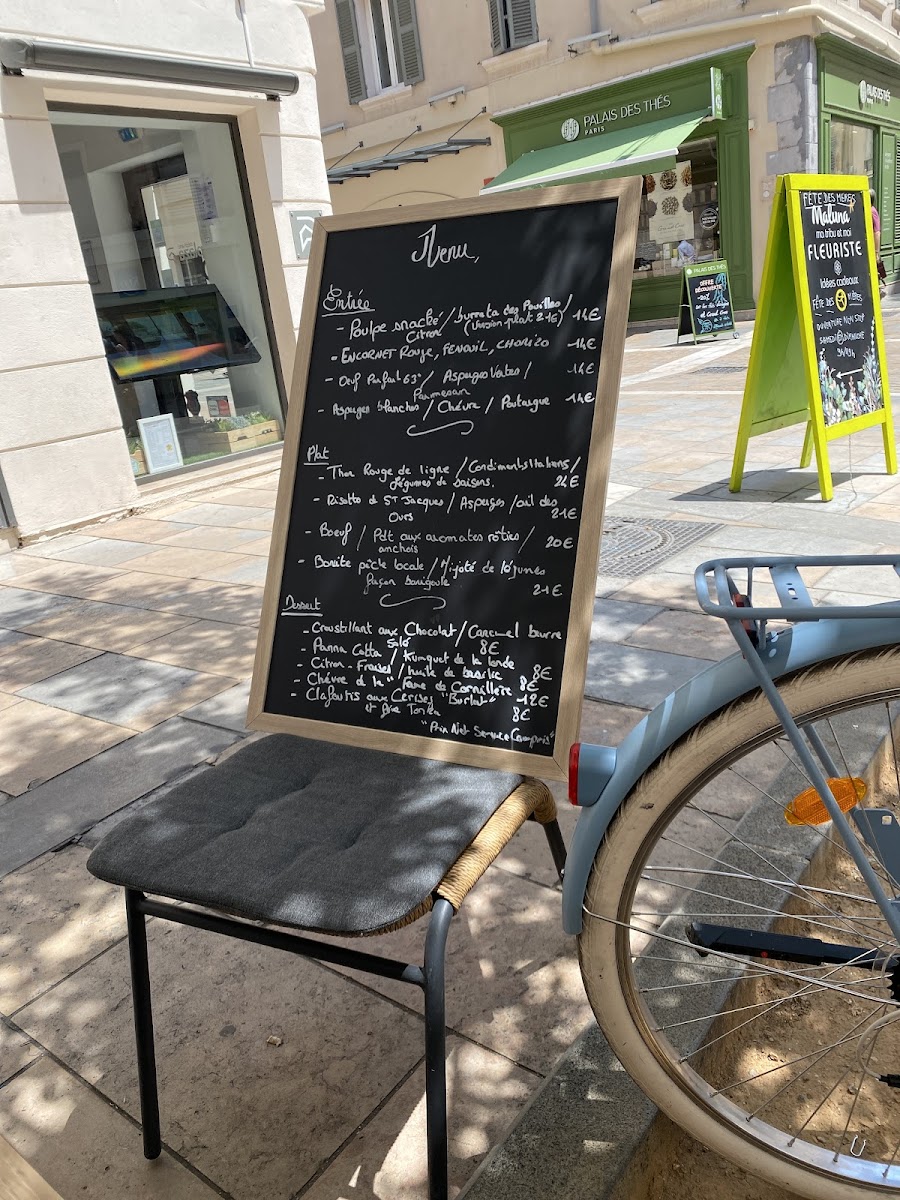 PALAIS DES THÉS
PARIS
PALAIS DES THÉS
FÊTE DES MÈRES
Maluna
ma tribu et moi
FLEURISTE
Idées cadeaux
FÊTE DES MÈRES
OUVERTURE NON STOP
SAMEDI DIMANCHE
PALAIS DES THÉS
OFFRE
DÉCOUVERTE
Menu,
Entrée
- Poulpe snacké / burrata des Pouilles /
Citron (version plat 21€) 14€
- ENCORNET ROUGE, FENOUIL, CHORIZO 14€
- Oeuf Parfait 63° / Asperges Vertes /
Parmesan 14€
- Asperges blanches / Chèvre / Poutargue 14€
Plat
- Thon Rouge de ligne / Condiments Italiens /
légumes de saisons. 24€
- Risotto d ST Jacques / Asperges / ail des
Ours 21€
- Boeuf / Pdt aux aromates rôties /
anchois 20€
- Bonite pêche locale / Mijoté de légumes
façon barigoule 21€
Dessert
- Croustillant aux Chocolat / Caramel beurre
salé 8€
- Panna Cotta / Kumquat de la londe
- Citron - Fraises / huile de basilic 8€
- Chèvre d la " Ferme de Cornillère 8€
- Clafoutis aux Cerises "Burlat" 12€
et fève Tonka 8€
"Prix Net Service Compris"